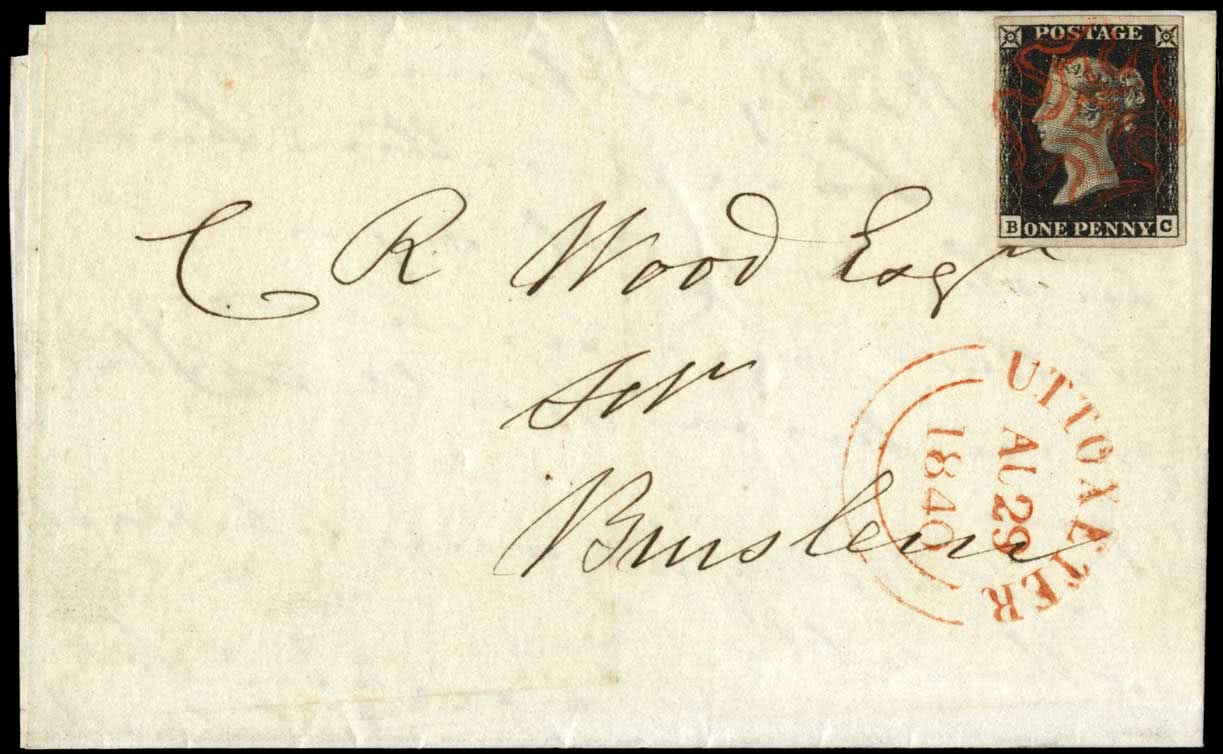 POSTAGE
B ONE PENNY. C
C R Wood Esqr
Solr
Burslem
UTTOXETER
AU 29
1840